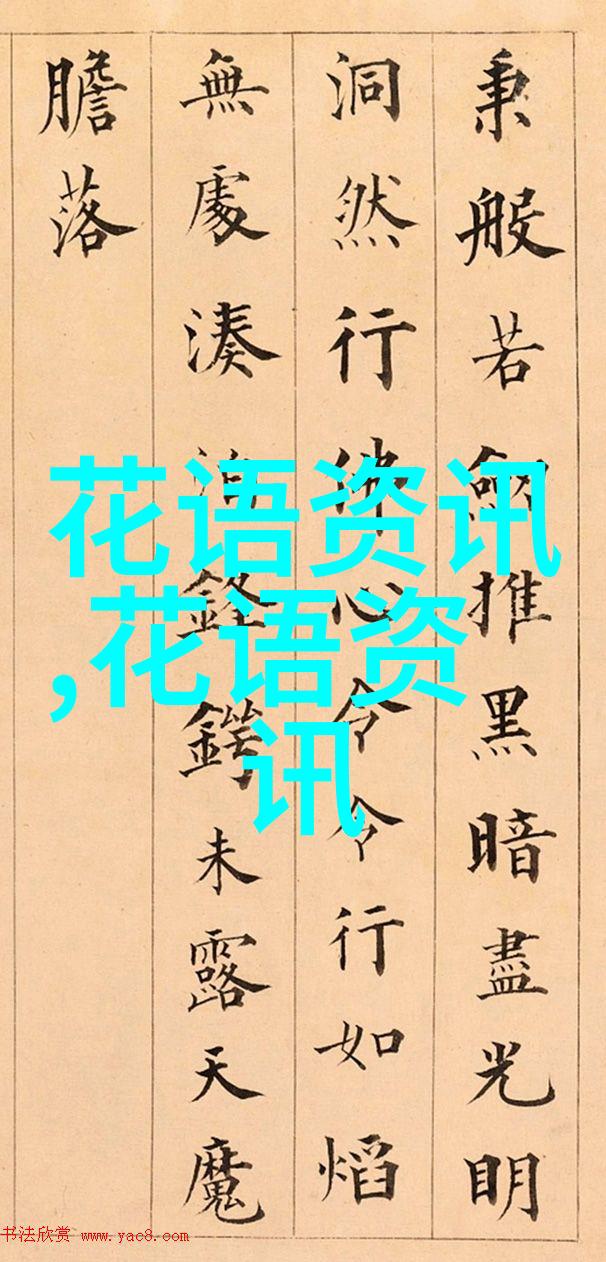 秉般若劍推黑暗盡光明
洞然行佛心令令行如熖
無處湊泊鋒鍔未露天魔
膽落
花语资讯
,花语资
讯
书法欣赏 www.yac8.com